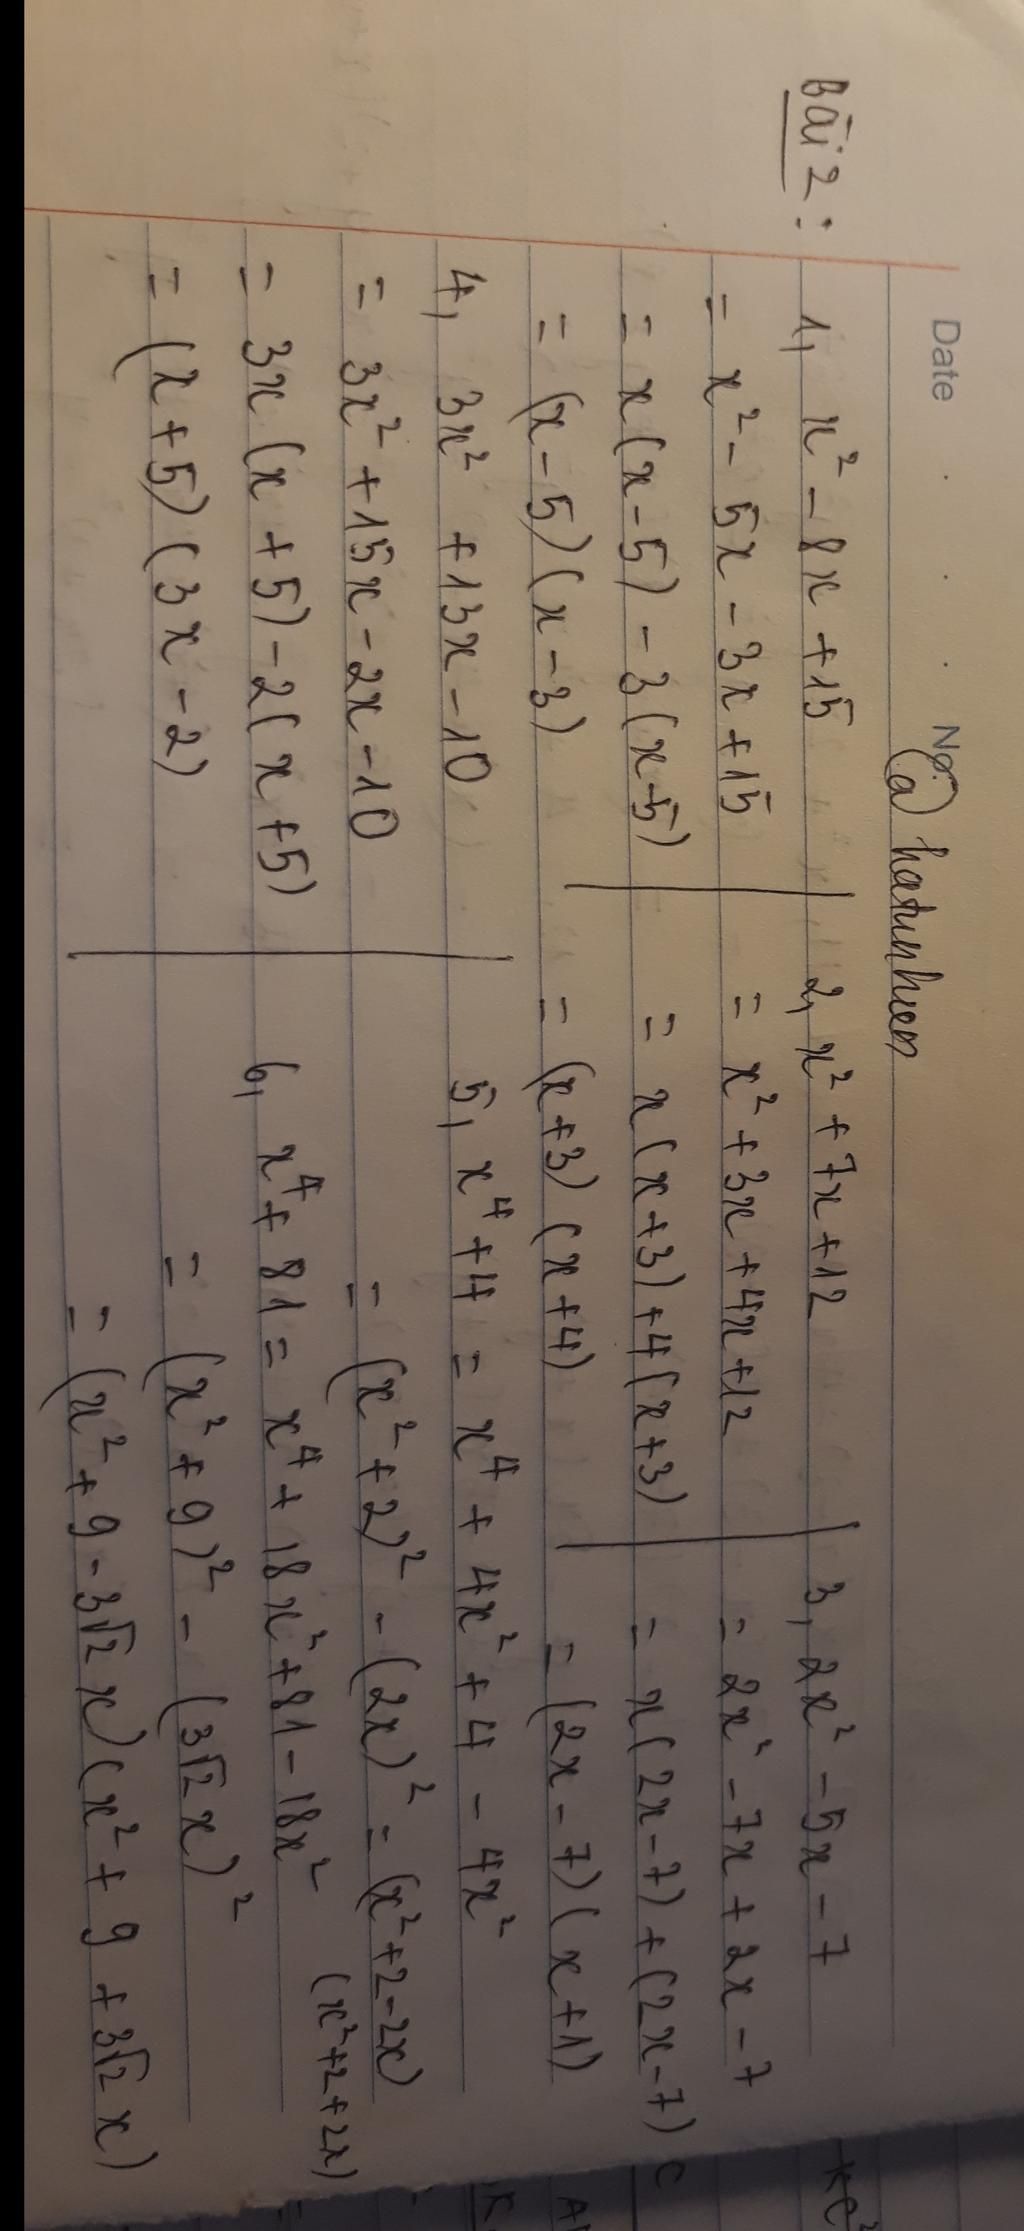 Date No.
@ hatunhien
Bài 2:
1, x² - 8x + 15
= x² - 5x - 3x + 15
= x(x-5) - 3(x-5)
= (x-5)(x-3)
2, x² + 7x + 12
= x² + 3x + 4x + 12
= x(x+3) + 4(x+3)
= (x+3)(x+4)
3, 2x² - 5x - 7
= 2x² - 7x + 2x - 7
= x(2x-7) + (2x-7)
= (2x-7)(x+1)
4, 3x² + 13x - 10
= 3x² + 15x - 2x - 10
= 3x(x+5) - 2(x+5)
= (x+5)(3x-2)
5, x⁴ + 4 = x⁴ + 4x² + 4 - 4x²
= (x²+2)² - (2x)² = (x²+2-2x)
(x²+2+2x)
6, x⁴ + 81 = x⁴ + 18x² + 81 - 18x²
= (x²+9)² - (3√2x)²
= (x²+9-3√2x)(x²+9+3√2x)